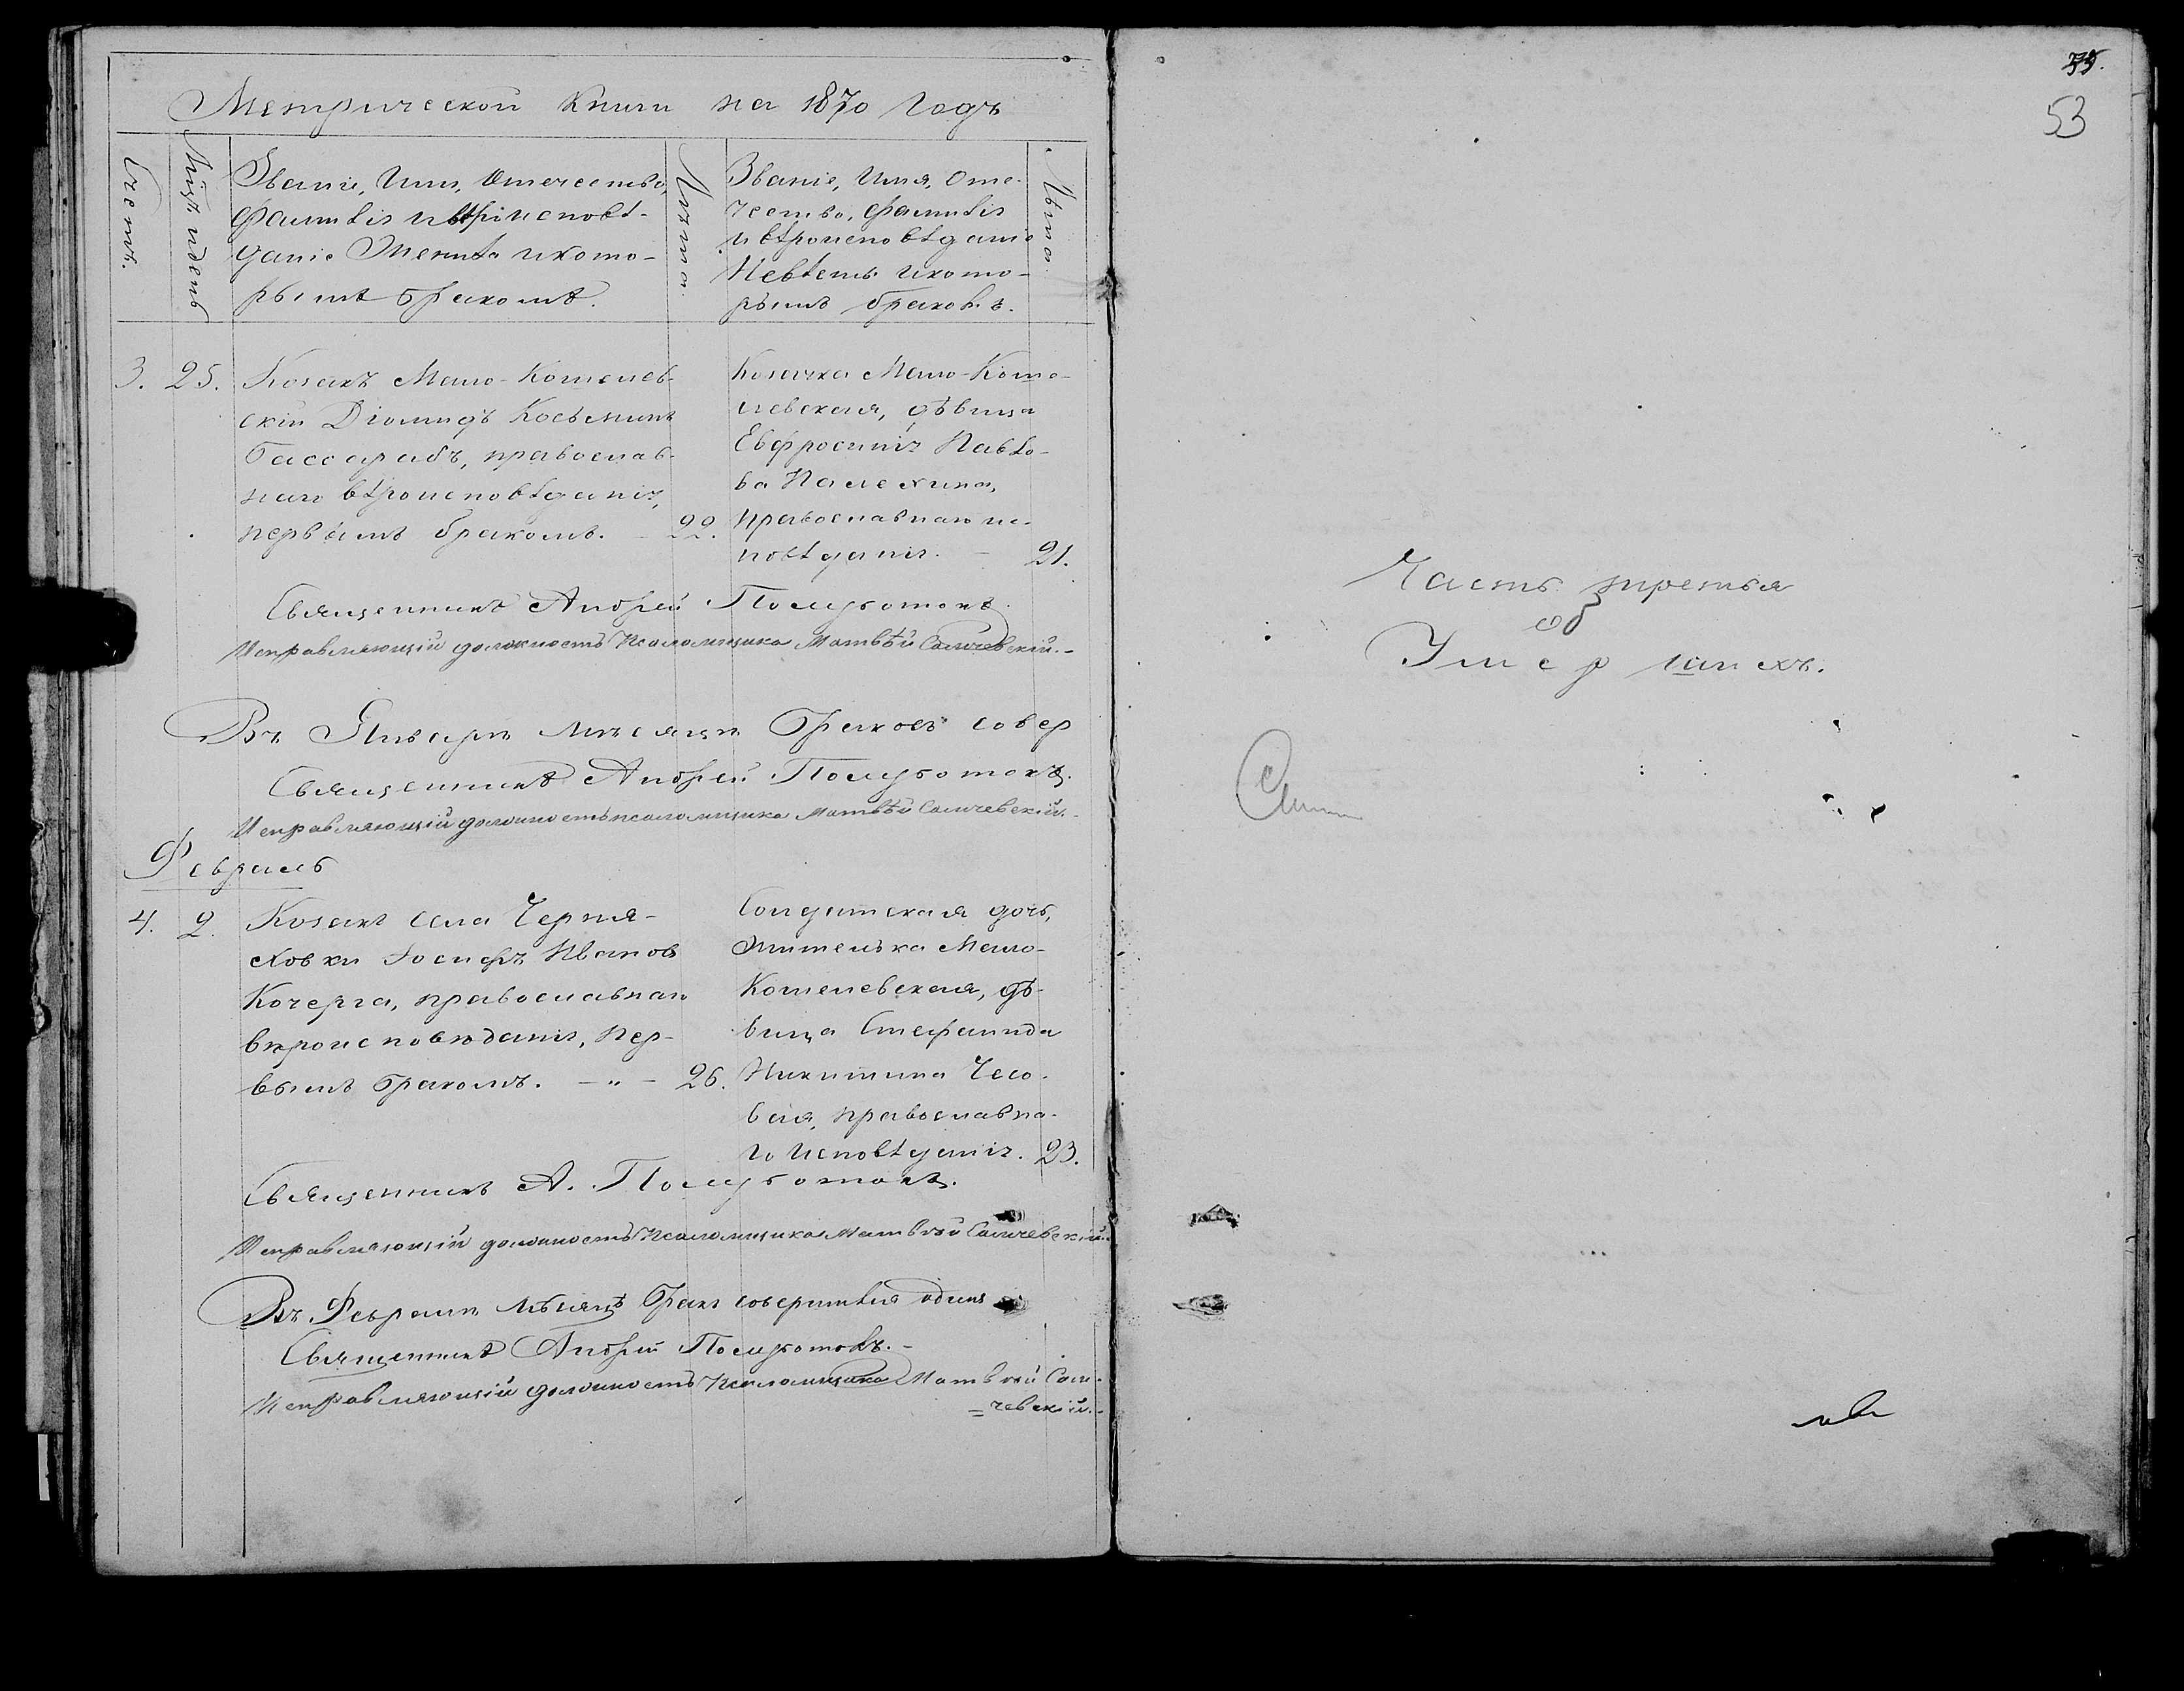 Метрической книги на 1870 годъ
Счетъ.
Мѣсяцъ и день
Званіе, Имя, Отечество,
фамилія и вѣроисповѣ-
даніе Жениха и кото-
рымъ бракомъ.
Лѣта.
Званіе, Имя, Оте-
чество, фамилія
и вѣроисповѣданіе
Невѣсты и кото-
рымъ бракомъ.
Лѣта.
3. 25. Козакъ Мало-Кошелев-
скій Діомидъ Косьминъ
Бассарабъ, православ-
наго вѣроисповѣданія,
первымъ бракомъ. - 22.
Козачка Мало-Коше-
левская, дѣвица
Евфросинія Павло-
ва Палехина,
православнаго ис-
повѣданія. - 21.
Священникъ Андрей Полуботокъ.
Исправляющій должность Псаломщика Матвѣй Саличевскій.-
Въ Январѣ мѣсяцѣ браковъ совер
Священникъ Андрей Полуботокъ.
Исправляющій должность псаломщика Матвѣй Саличевскій.-
Февраль
4. 2. Козакъ села Черня-
ховки Іосифъ Ивановъ
Кочерга, православнаго
вѣроисповѣданія, пер-
вымъ бракомъ. - „ - 26.
Солдатская дочь,
жителька Мало-
Кошелевская, дѣ-
вица Стефанида
Никитина Чесо-
вая, православна-
го исповѣданія. 23.
Священникъ А. Полуботокъ.
Исправляющій должность Псаломщика Матвѣй Саличевскій.
Въ Февралѣ мѣсяцѣ бракъ совершился одинъ
Священникъ Андрей Полуботокъ.-
Исправляющій должность Псаломщика Матвѣй Сали-
=чевскій.-
53
Часть третья
об
Умершихъ.